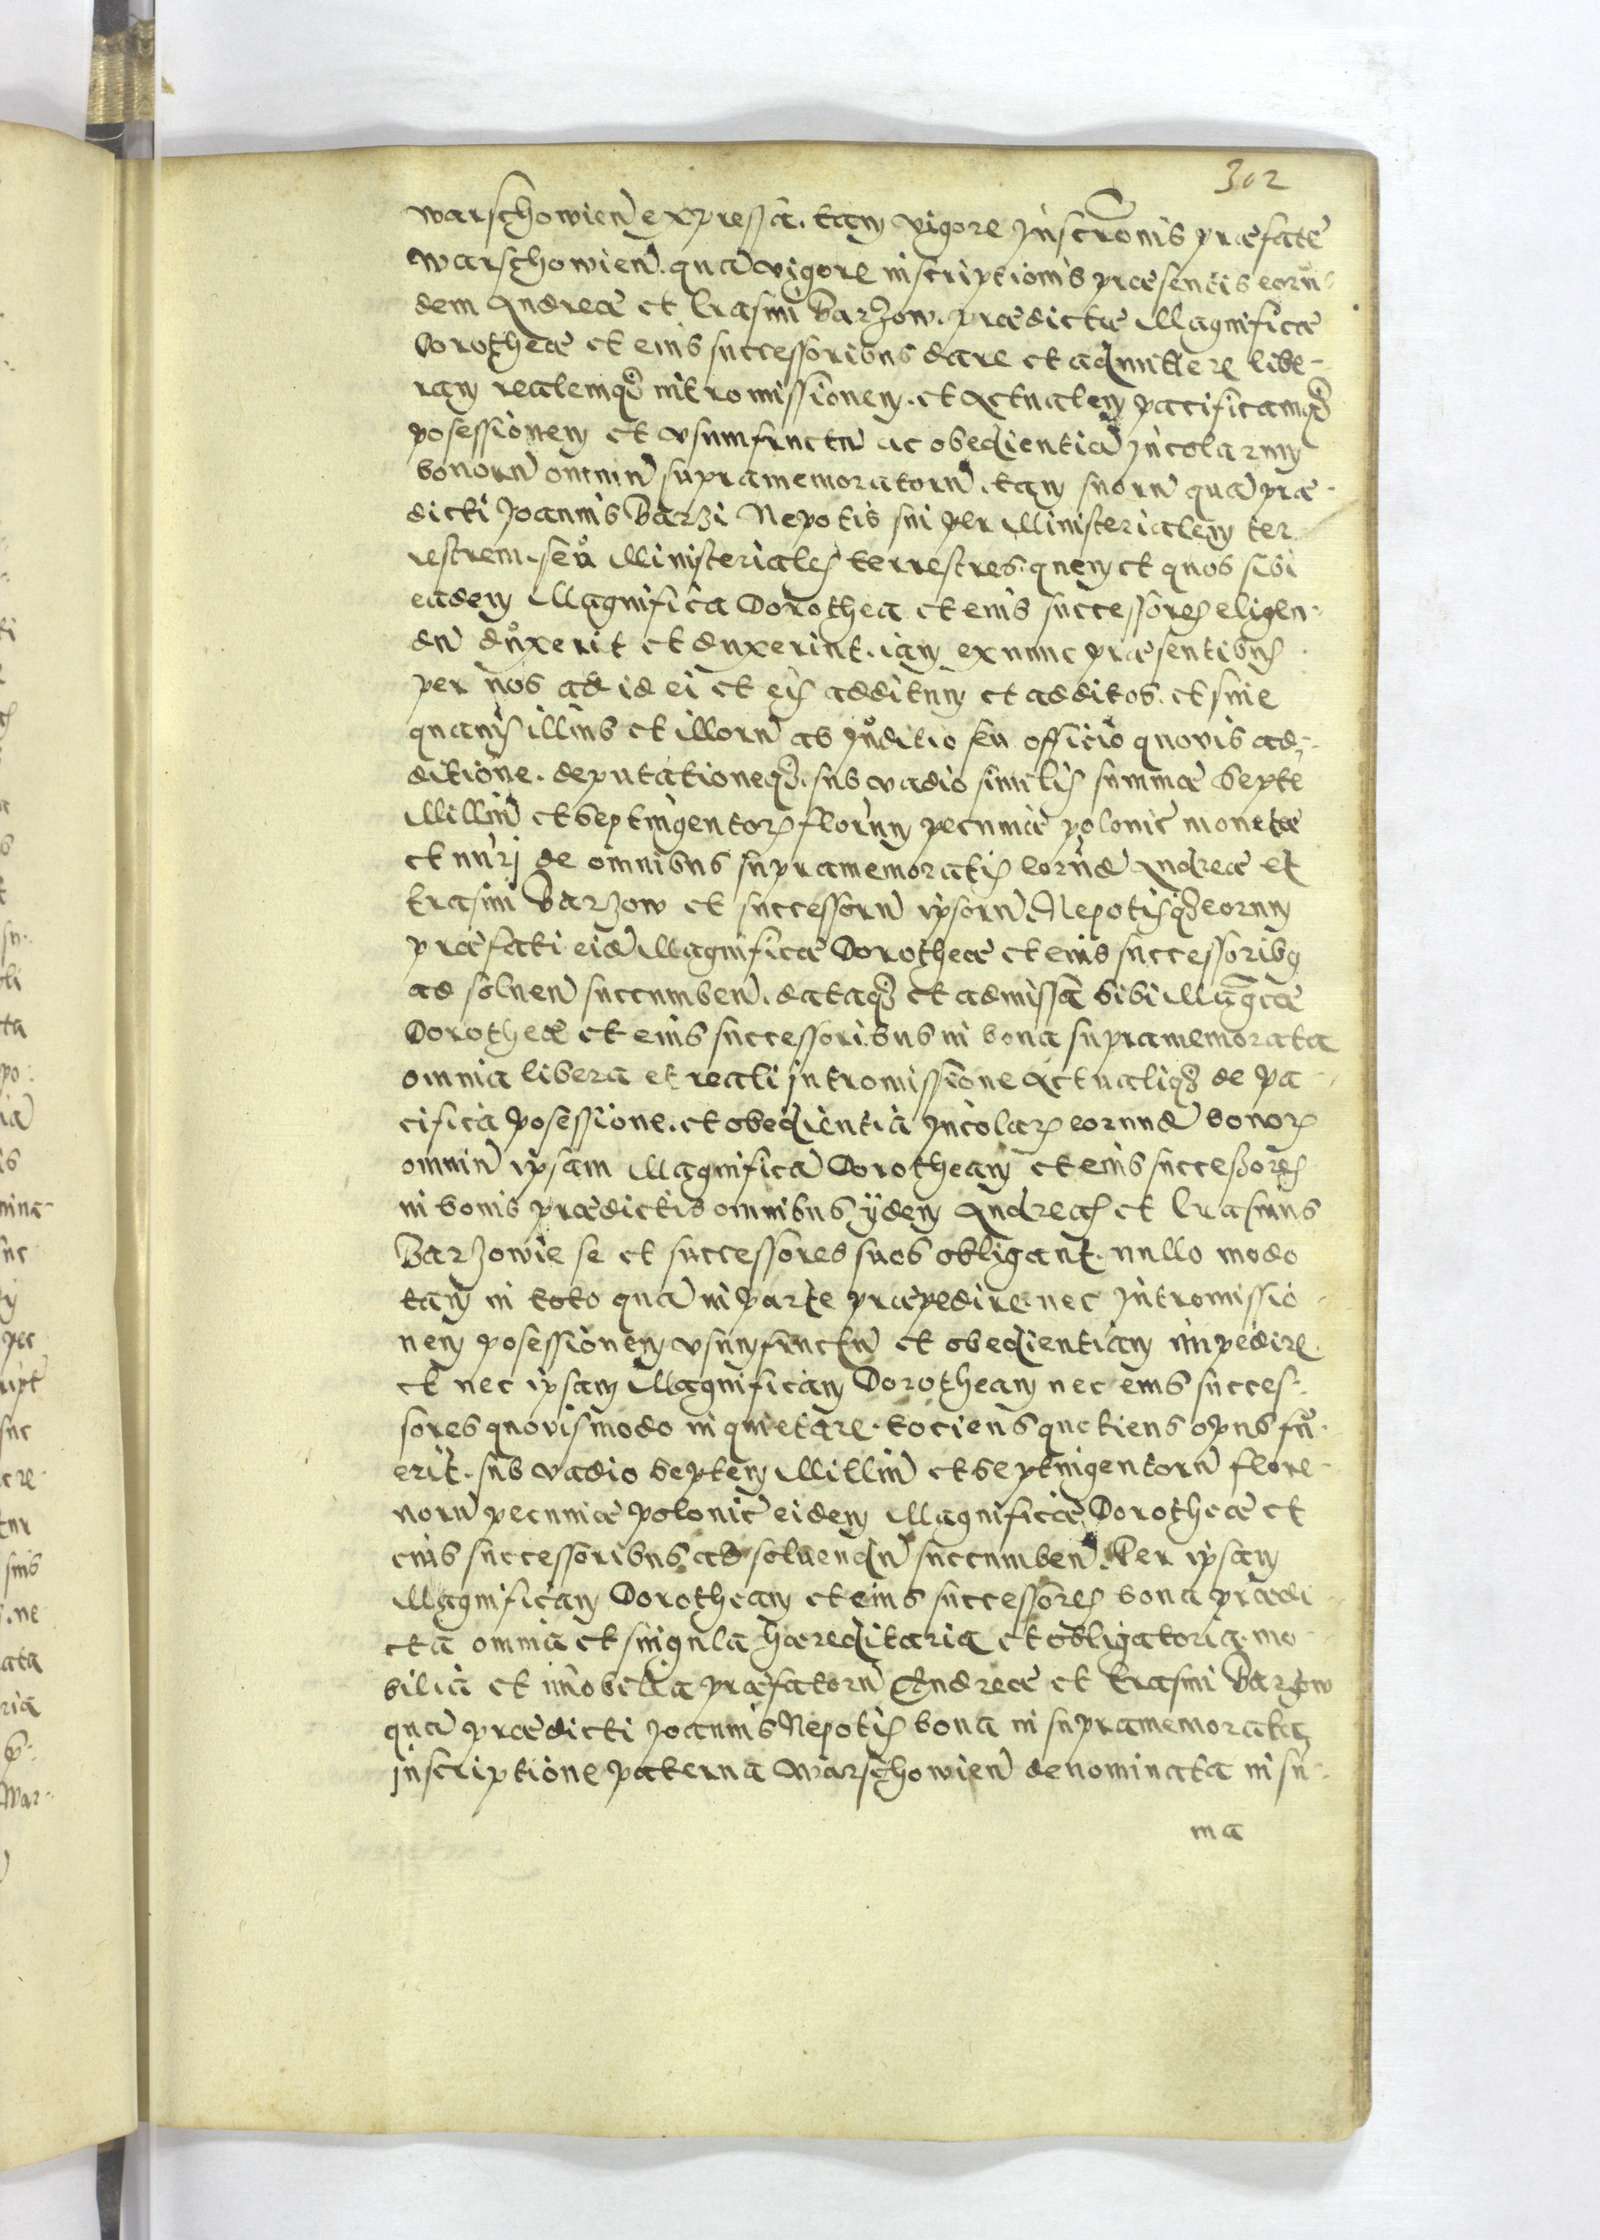 302
warschowien̄ expressā. tam vigore Inscr̄onis præfatē
warschowien̄. quā vigore inscriptionis præsentis eorū-
dem Andreæ et Erasmi Barzow. prædictæ Magnificæ
Dorotheæ et eius successoribus dare et admittere libe-
ram realemq₃ intromissionem. et Actualem pacificamq₃
posessionem et vsumfructū ac obedientiā Incolarum
bonorū omniū supramemoratorū. tam suorū quā præ-
dicti Joannis Barzi Nepotis sui per Ministerialem ter
restrem. seu Ministeriales terrestres. quem et quos sibi
eadem Magnifica Dorothea et eius successores eligen-
dū duxerit et duxerint. iam exnunc præsentibus
per nos ad id ei et eis additum et additos. et sine
quauis illius et illorū ab Juditio seu officio quovis ad-
ditione. deputationeq₃. sub vadio similis summæ Septē
Milliū et Septingentorꝝ florīnum pecuniæ polonic̄ monetæ
et nūri de omnibus supramemoratis eorund̄ Andreæ et
Erasmi Barzow et successorū ipsorū. Nepotisq₃ eorum
præfati eid̄ Magnificæ Dorotheæ et eius successoribꝫ
ad soluen̄ succumben̄. dataq₃ et admissa sibi Mag̅cæ
Dorotheæ et eius successoribus in bona supramemorata
omnia libera et reali intromissione Actualiq₃ de pa-
cifica posessione. et obedientia Incolarꝝ eorund̄ bonorꝝ
omniū ipsam Magnificā Dorotheam et eius successores
in bonis prædictis omnibus ijdem Andreas et Erasmus
Barzowie se et successores suos obligant. nullo modo
tam in toto quā in parte præpedire. nec Intromissio
nem posessionem vsumfructū et obedientiam impedire.
et nec ipsam Magnificam Dorotheam nec eius succes-
sores quovismodo inquietare. tociens quotiens opus fu-
erit. sub vadio Septem Milliū et Septingentorū flore-
norū pecuniæ polonic̄ eidem Magnificæ Dorotheæ et
eius successoribus ad soluendū succumben̄. Per ipsam
Magnificam Dorotheam et eius successores bona prædi
cta omnia et singula hæreditaria et obligatoria. mo-
bilia et im̄obilia præfatorū Andreæ et Erasmi Barzow
quā prædicti Joannis Nepotis bona in supramemorata
inscriptione paterna Warschowien̄ denominata in su-
ma